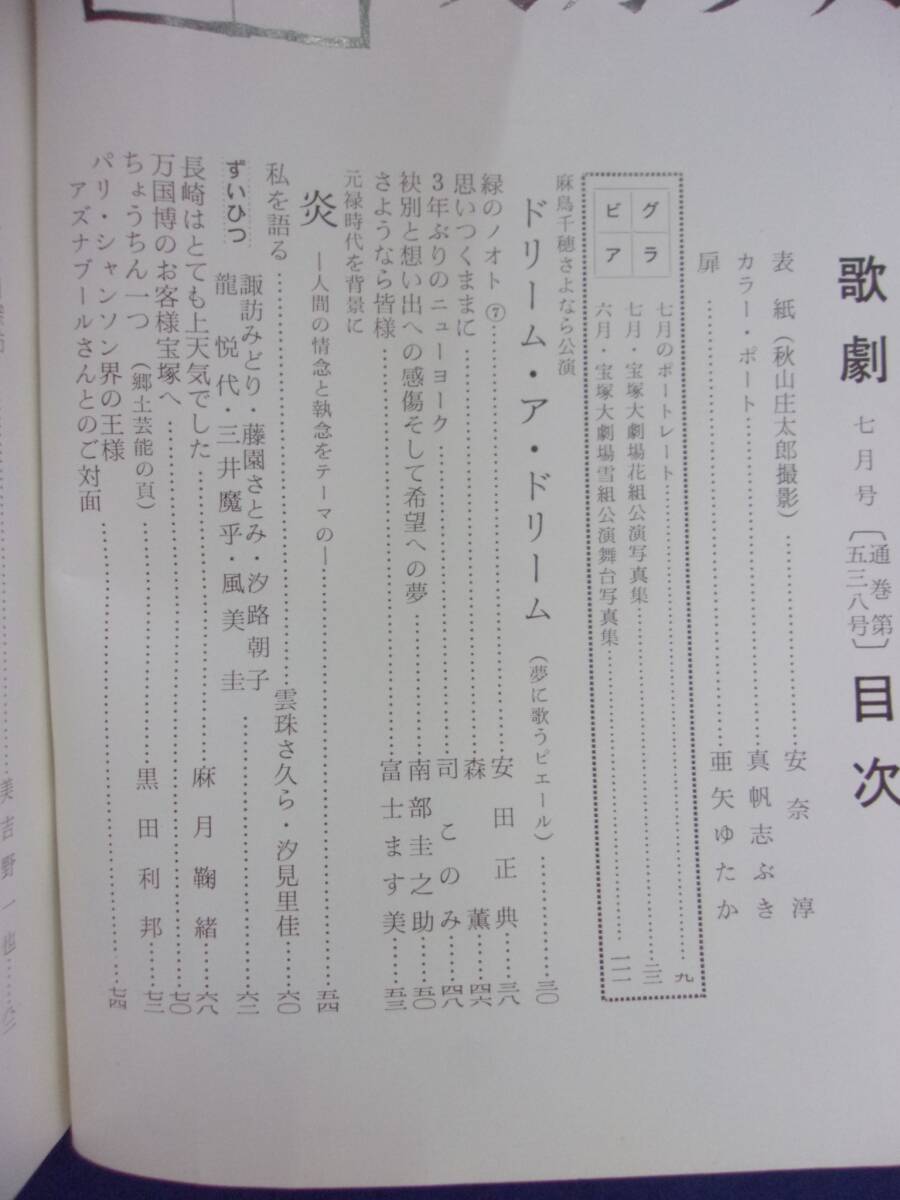 歌劇 七月号 〔通巻第五三八号〕 目次
表紙(秋山庄太郎撮影)……安奈淳
カラー・ポート……真帆志ぶき
扉……亜矢ゆたか
グラビア
七月のポートレート……九
七月・宝塚大劇場花組公演写真集……二二
六月・宝塚大劇場雪組公演舞台写真集……一一
麻鳥千穂さよなら公演
ドリーム・ア・ドリーム(夢に歌うピエール)……三〇
緑のノオト⑦……安田正典……三八
思いつくままに……森薫……四六
3年ぶりのニューヨーク……司このみ……四八
袂別と想い出への感傷そして希望への夢……南部圭之助……五〇
さようなら皆様……富士ます美……五三
元禄時代を背景に
炎 ―人間の情念と執念をテーマの―……五四
私を語る……雲珠さ久ら・汐見里佳……六〇
ずいひつ
諏訪みどり・藤園さとみ・汐路朝子
龍悦代・三井魔乎・風美圭……六二
長崎はとても上天気でした……麻月鞠緒……六八
万国博のお客様宝塚へ……七〇
ちょうちん一つ(郷土芸能の頁)……黒田利邦……七二
パリ・シャンソン界の王様
アズナブールさんとのご対面……七四
美吉野一也